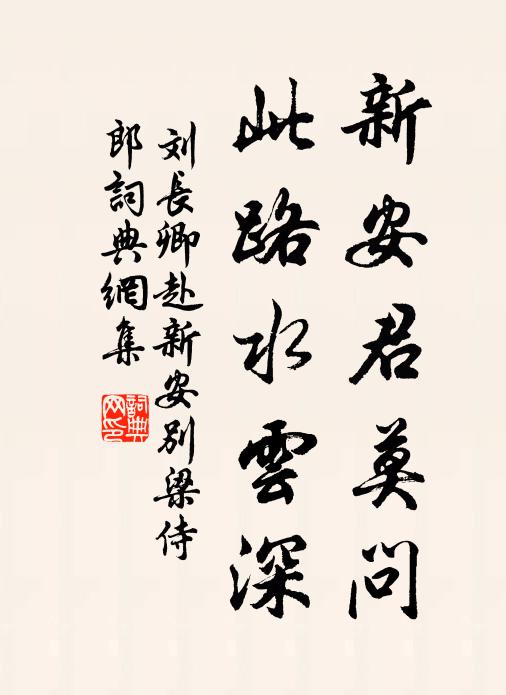 新安君莫問
此路水雲深
刘長卿赴新安别梁侍
郎詞典網集
詞典
网印